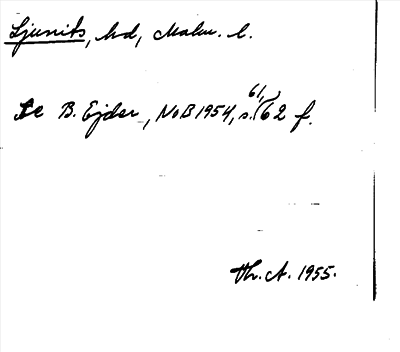 Ljunits, hd, Malm. l.
Se B. Ejder, NoB 1954, s. 61, 62 f.
Th. A. 1955.